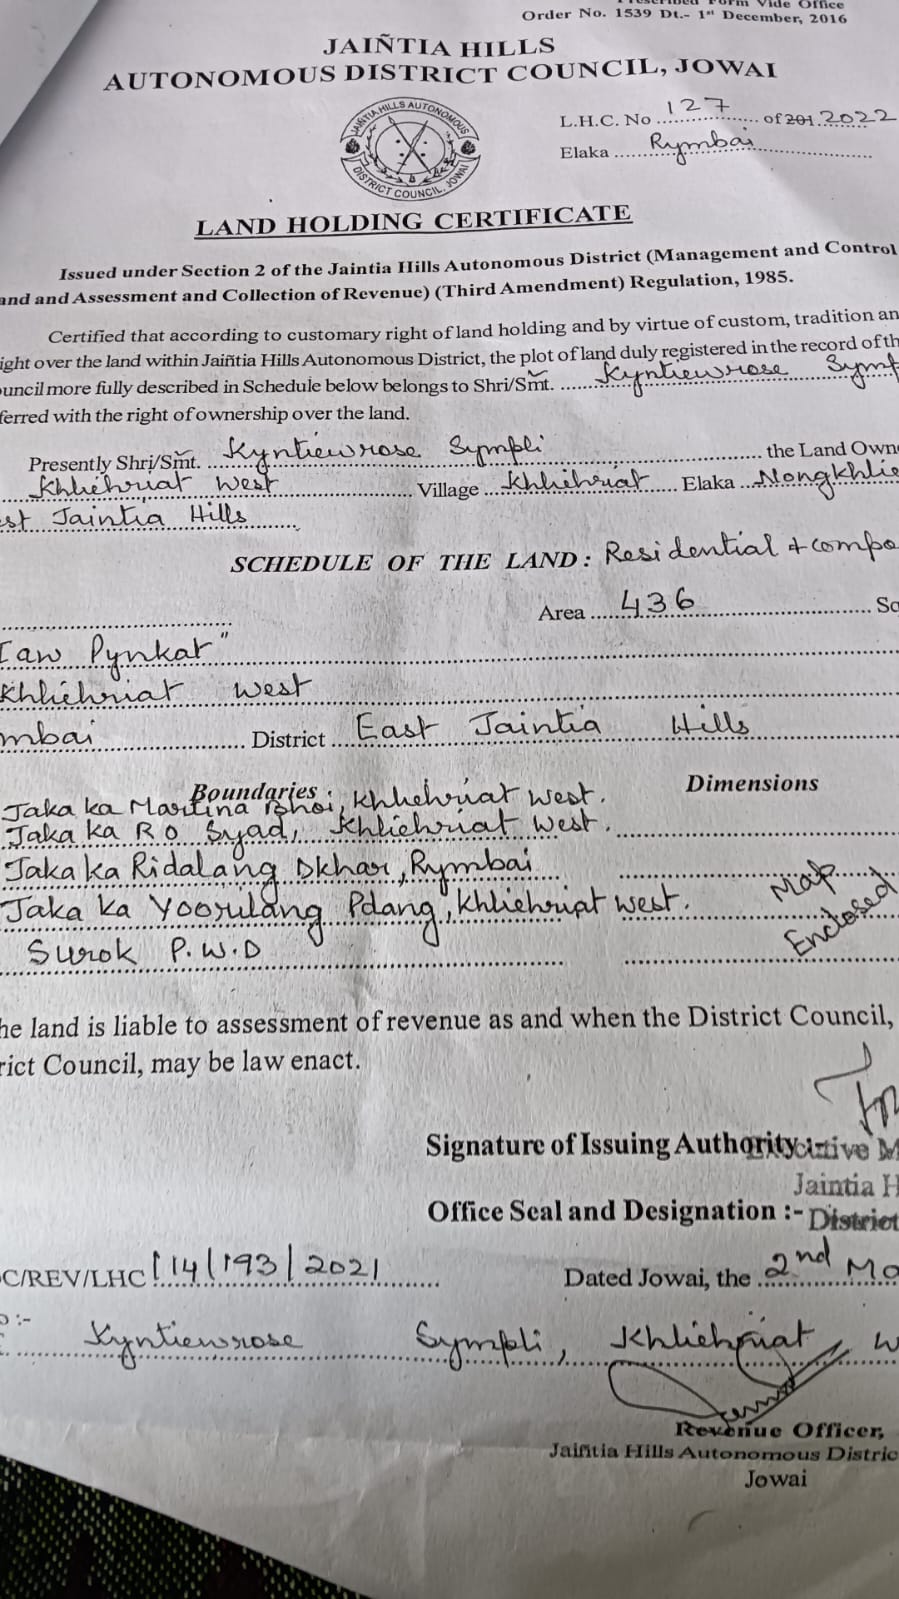 Prescribed Form Vide Office
Order No. 1539 Dt.- 1st December, 2016
JAIÑTIA HILLS
AUTONOMOUS DISTRICT COUNCIL, JOWAI
JAIÑTIA HILLS AUTONOMOUS
DISTRICT COUNCIL, JOWAI
L.H.C. No 127 of 201 2022
Elaka Rymbai
LAND HOLDING CERTIFICATE
Issued under Section 2 of the Jaintia Hills Autonomous District (Management and Control
and and Assessment and Collection of Revenue) (Third Amendment) Regulation, 1985.
Certified that according to customary right of land holding and by virtue of custom, tradition an
ight over the land within Jaiñtia Hills Autonomous District, the plot of land duly registered in the record of th
ouncil more fully described in Schedule below belongs to Shri/Smt. Kyntiewrose Symp
ferred with the right of ownership over the land.
Presently Shri/Smt. Kyntiewrose Sympli the Land Own
Khliehriat West Village Khliehriat Elaka Nongkhlie
est Jaintia Hills
SCHEDULE OF THE LAND: Residential + compo
Area 436 Sq
Iaw Pynkat"
Khliehriat West
mbai District East Jaintia Hills
Boundaries : Dimensions
Jaka ka Martina Bhoi, Khliehriat West.
Jaka ka R O Syad, Khliehriat West.
Jaka ka Ridalang Dkhar, Rymbai
Jaka ka Yoorulang Pdang, Khliehriat West.
Surok P.W.D
Map
Enclosed
he land is liable to assessment of revenue as and when the District Council,
rict Council, may be law enact.
Signature of Issuing Authority :-
utive M
Jaintia H
Office Seal and Designation :- District
C/REV/LHC/114/193/2021 Dated Jowai, the 2nd Ma
o :-
Kyntiewrose Sympli, Khliehriat W
Revenue Officer,
Jaiñtia Hills Autonomous Distric
Jowai